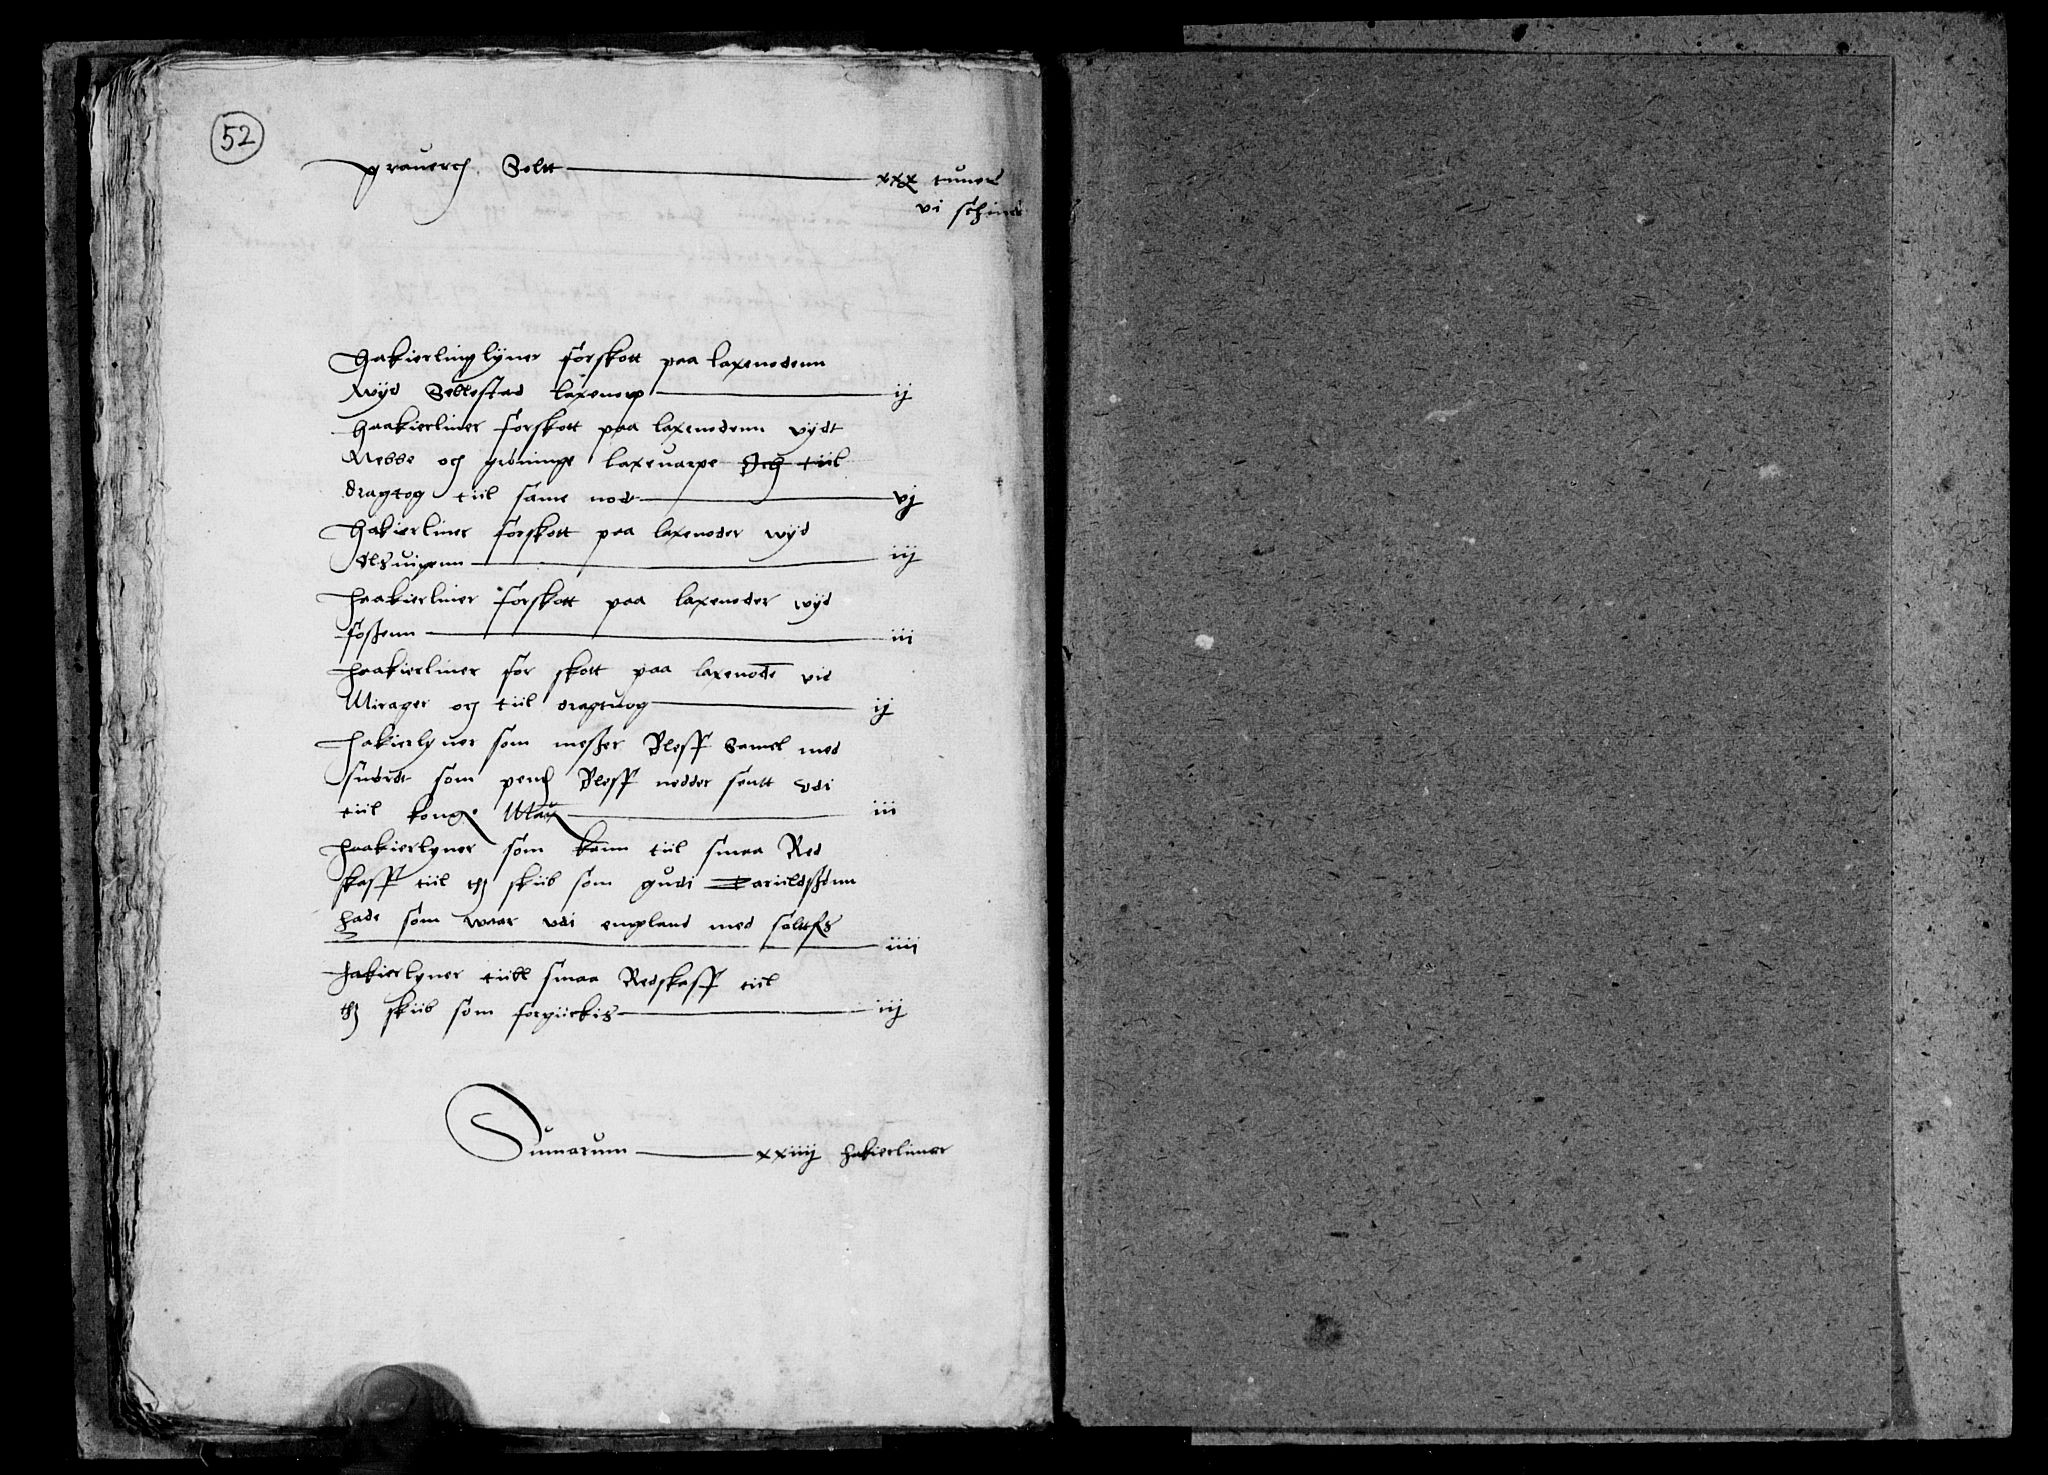 52
prauerch Soltt xxx tuner
vi schine
Hakierlinglyner forskott paa laxenodenn
wyd Sellestad laxenorp ij
Haakierliner forskott paa laxenodenn vydt
Nebbe och grøninge laxeuarpe Och tiil
dragtog tiil same nodt vj
Hakierliner forskott paa laxenoder wyd
iij
Haakierliner forskott paa laxenoder wyd
foßenn iii
Haakierliner for skott paa laxenode vid
Mirager och tiil dragtuog ij
Hakierlyner som meßer Oleff Samel med
som Oleff nedder sentt vdi
tiil kong Maii iii
Haakierlyner som kam tiil smaa Red
skaff tiil th skiib som gudi
hade som waar vdi england med
iiii
Hakierlyner tiill smaa Redskaff tiil
th skiib som forgiickis iij
Sumarum xxiiij hakierliner